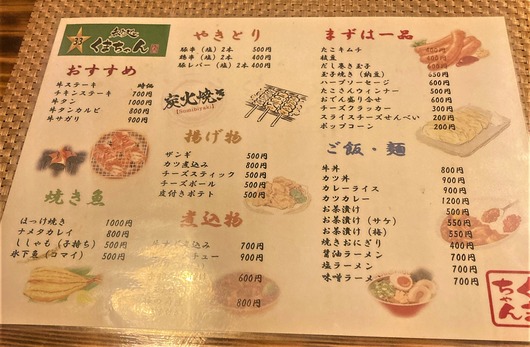 33
くまちゃん
おすすめ
牛ステーキ 時価
チキンステーキ 700円
牛タン 1000円
牛タンカルビ 800円
牛サガリ 900円
焼き魚
ほっけ焼き 1000円
ナメタカレイ 800円
ししゃも(子持ち) 500円
氷下魚(コマイ) 500円
やきとり
豚串(塩)2本 500円
鶏串(塩)2本 400円
豚レバー(塩)2本 400円
炭火焼き
[Sumibiyaki]
揚げ物
ザンギ 500円
カツ煮込み 800円
チーズスティック 500円
チーズボール 500円
皮付きポテト 500円
煮込物
込み 700円
ュー 900円
600円
800円
まずは一品
たこキムチ 400円
枝豆 400円
だし巻き玉子 400円
玉子焼き(納豆) 650円
ハーブソーセージ 600円
たこさんウィンナー 500円
おでん盛り合せ 600円
チーズクラッカー 300円
スライスチーズせんべい 200円
ポップコーン 200円
ご飯・麺
牛丼 800円
カツ丼 900円
カレーライス 900円
カツカレー 1200円
お茶漬け 500円
お茶漬け(サケ) 550円
お茶漬け(梅) 550円
焼きおにぎり 400円
醤油ラーメン 700円
塩ラーメン 700円
味噌ラーメン 700円
くま
ちゃん